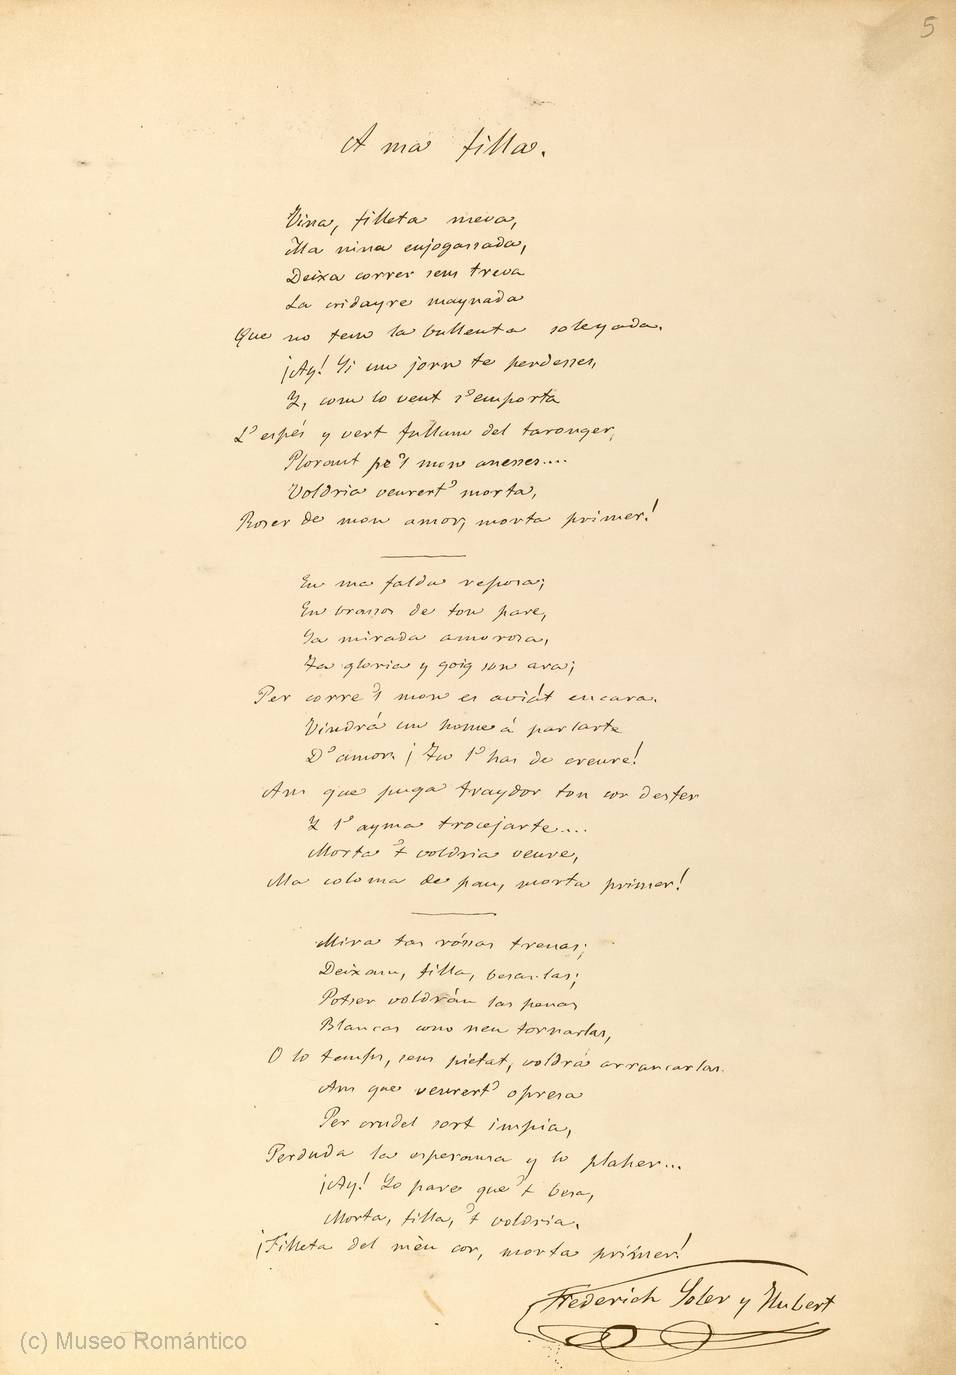 5
A ma filla.
Vina, filleta meva,
Ma nina enjogassada,
Deixa correr sens treva
La cridayre maynada
Que no tem la bullenta soleyada.
¡Ay! Si un jorn te perdesses,
Y, com lo vent s'emporta
L'espés y vert fullam del taronger,
Plorant pe'l mon anesses....
Voldria veurert' morta,
Roser de mon amor, morta primer!
En ma falda reposa;
En brassos de ton pare,
Sa mirada amorosa,
Ta gloria y goig son ara;
Per corre'l mon es aviát encara.
Vindrá un home á parlarte
D'amor. ¡Tu l'has de creure!
Ans que puga traydor ton cor desfer
Y l'ayma trocejarte....
Morta 't voldria veure,
Ma coloma de pau, morta primer!
Mira tas róssas trenas;
Deixam, filla, besar-las;
Potser voldrán las penas
Blancas como neu tornarlas,
O lo temps, sens pietat, voldrá arrancarlas.
Ans que veurert' opresa
Per crudel sort impia,
Perduda la esperansa y lo plaher...
¡Ay! Lo pare que 't besa,
Morta, filla, 't voldria.
¡Filleta del mèu cor, morta primer!
Frederich Soler y Hubert
(c) Museo Romántico